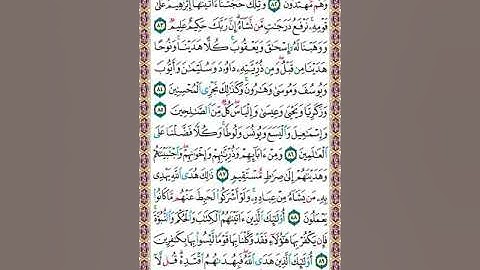 وَهُم مُّهْتَدُونَ ٨٢ وَتِلْكَ حُجَّتُنَآ ءَاتَيْنَٰهَآ إِبْرَٰهِيمَ عَلَىٰ
قَوْمِهِۦ ۚ نَرْفَعُ دَرَجَٰتٍ مَّن نَّشَآءُ ۗ إِنَّ رَبَّكَ حَكِيمٌ عَلِيمٌ ٨٣
وَوَهَبْنَا لَهُۥٓ إِسْحَٰقَ وَيَعْقُوبَ ۚ كُلًّا هَدَيْنَا ۚ وَنُوحًا
هَدَيْنَا مِن قَبْلُ ۖ وَمِن ذُرِّيَّتِهِۦ دَاوُۥدَ وَسُلَيْمَٰنَ وَأَيُّوبَ
وَيُوسُفَ وَمُوسَىٰ وَهَٰرُونَ ۚ وَكَذَٰلِكَ نَجْزِى ٱلْمُحْسِنِينَ ٨٤
وَزَكَرِيَّا وَيَحْيَىٰ وَعِيسَىٰ وَإِلْيَاسَ ۖ كُلٌّ مِّنَ ٱلصَّٰلِحِينَ ٨٥
وَإِسْمَٰعِيلَ وَٱلْيَسَعَ وَيُونُسَ وَلُوطًا ۚ وَكُلًّا فَضَّلْنَا عَلَى
ٱلْعَٰلَمِينَ ٨٦ وَمِنْ ءَابَآئِهِمْ وَذُرِّيَّٰتِهِمْ وَإِخْوَٰنِهِمْ ۖ وَٱجْتَبَيْنَٰهُمْ
وَهَدَيْنَٰهُمْ إِلَىٰ صِرَٰطٍ مُّسْتَقِيمٍ ٨٧ ذَٰلِكَ هُدَى ٱللَّهِ يَهْدِى
بِهِۦ مَن يَشَآءُ مِنْ عِبَادِهِۦ ۚ وَلَوْ أَشْرَكُوا۟ لَحَبِطَ عَنْهُم مَّا كَانُوا۟
يَعْمَلُونَ ٨٨ أُو۟لَٰٓئِكَ ٱلَّذِينَ ءَاتَيْنَٰهُمُ ٱلْكِتَٰبَ وَٱلْحُكْمَ وَٱلنُّبُوَّةَ ۚ
فَإِن يَكْفُرْ بِهَا هَٰٓؤُلَآءِ فَقَدْ وَكَّلْنَا بِهَا قَوْمًا لَّيْسُوا۟ بِهَا بِكَٰفِرِينَ
٨٩ أُو۟لَٰٓئِكَ ٱلَّذِينَ هَدَى ٱللَّهُ ۖ فَبِهُدَىٰهُمُ ٱقْتَدِهْ ۗ قُل لَّآ